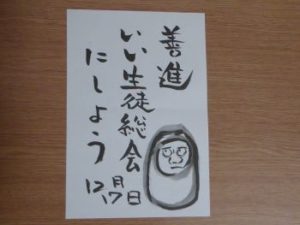 善進
いい生徒総会
にしよう
12月17日